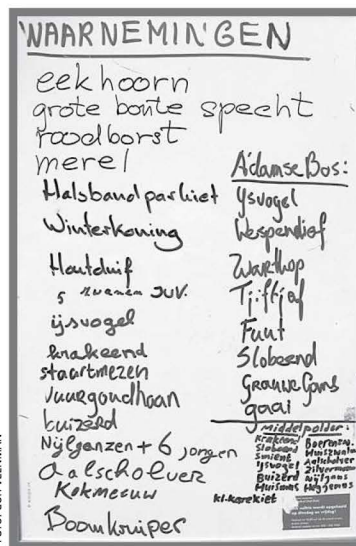 WAARNEMINGEN
eekhoorn
grote bonte specht
roodborst
merel
Halsbandparkiet
Winterkoning
Houtduif
5 zwanen JUV.
ijsvogel
krakeend
staartmezen
vuurgoudhaan
buizerd
Nijlganzen + 6 jongen
Aalscholver
Kokmeeuw
Boomkruiper
A'damse Bos:
Ijsvogel
Wespendief
Zwarte
Tjiftjaf
Fuut
Slobeend
Grauwe Gans
gaai
middelpolder:
Krakeend
Slobeend
Smient
Ijsvogel
Buizerd
Huismus
kl. karekiet
Boerenzw.
Huiszwaluw
Aalscholver
Zilvermeeuw
Nijlgans